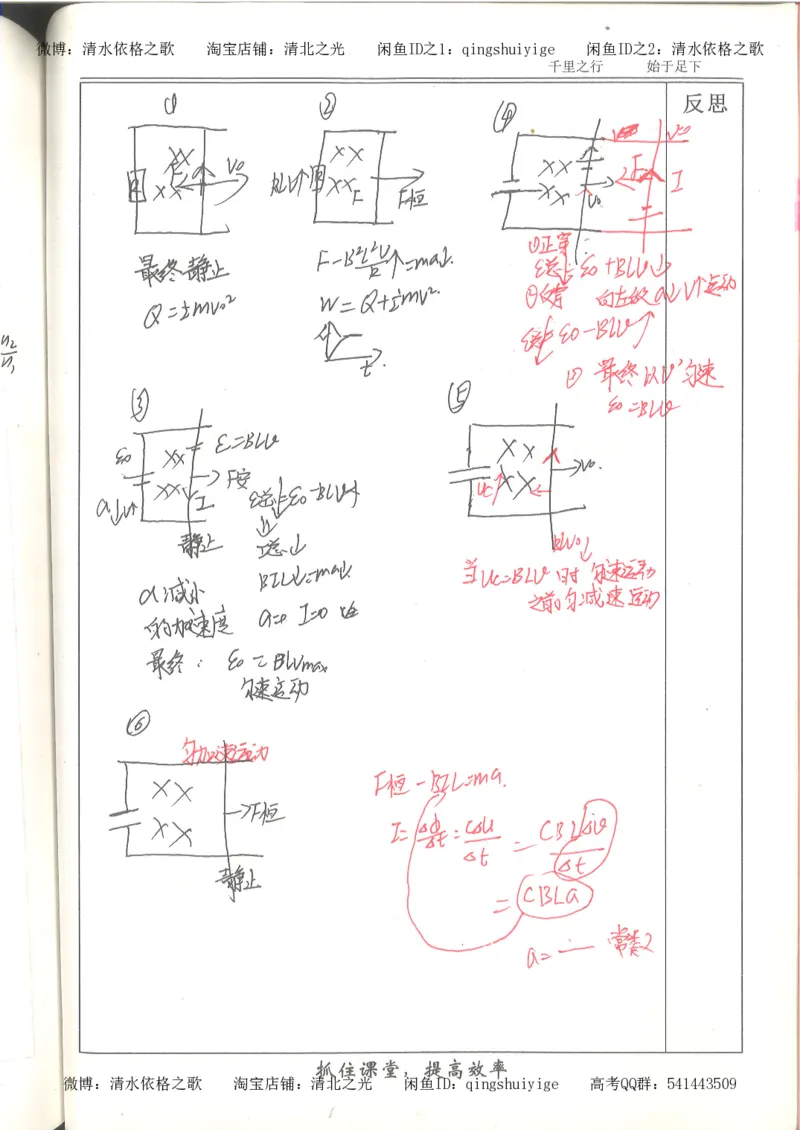 微博：清水依格之歌 淘宝店铺：清北之光 闲鱼ID之1：qingshuiyige 闲鱼ID之2：清水依格之歌
千里之行 始于足下
反思
①
R
××
××
F
v0
最终静止
Q=½mv0²
②
BLV↑
R
××
××
F
F恒
F-B²L²V/R↑=ma↓.
W=Q+½mv².
t.
④
××
××
v0
v0
F
I
①正穿
ε总↓=ε0+BLV↓
②反穿 向左 a↓V↑运动
ε总↓=ε0-BLV↑
③ 最终以V'匀速
ε0=BLV
③
ε0
××
××
ε=BLV
F安
I
a↓v↑
静止
ε总↓=ε0-BLV↑
I总↓
BIL↓=ma↓
a=0 I=0
a减小
的加速度
最终：ε0=BLVmax
匀速运动
⑤
××
××
Uc
v0.
BLV0↓
当Uc=BLV时 匀速运动
之前 减速运动
⑥
匀加速运动
××
××
F恒
静止
F恒-BIL=ma.
I=Δq/Δt=CΔU/Δt=CBLΔv/Δt
=CBLa
a= 常数
抓住课堂，提高效率
微博：清水依格之歌 淘宝店铺：清北之光 闲鱼ID：qingshuiyige 高考QQ群：541443509